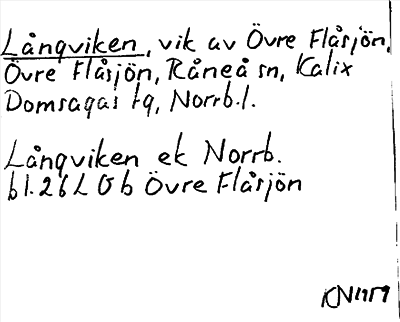 Långviken, vik av Övre Flåsjön,
Övre Flåsjön, Råneå sn, Kalix
Domsagas tg, Norrb. l.
Långviken ek Norrb.
bl. 26 L 0 b Övre Flåsjön